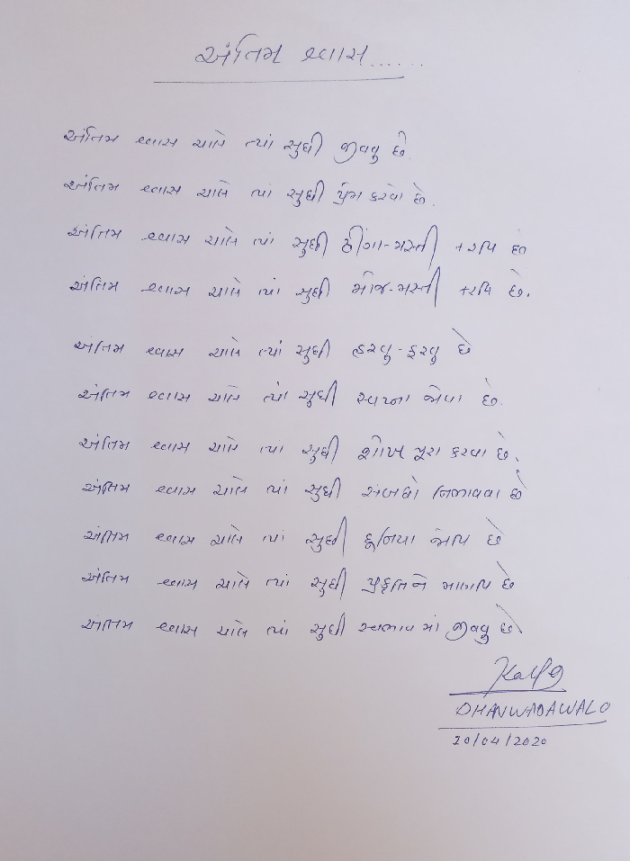 અંતિમ શ્વાસ......
અંતિમ શ્વાસ ચાલે ત્યાં સુધી જીવવુ છે.
અંતિમ શ્વાસ ચાલે ત્યાં સુધી પ્રેમ કરવો છે.
અંતિમ શ્વાસ ચાલે ત્યાં સુધી ઠીંગા-મસ્તી કરવી છે
અંતિમ શ્વાસ ચાલે ત્યાં સુધી મોજ-મસ્તી કરવી છે.
અંતિમ શ્વાસ ચાલે ત્યાં સુધી હરવુ-ફરવુ છે
અંતિમ શ્વાસ ચાલે ત્યાં સુધી સ્વપ્ના જોવા છે.
અંતિમ શ્વાસ ચાલે ત્યા સુધી શોખ પૂરા કરવા છે.
અંતિમ શ્વાસ ચાલે ત્યાં સુધી સંબધો નિભાવવા છે
અંતિમ શ્વાસ ચાલે ત્યાં સુધી દૂનિયા જોવી છે
અંતિમ શ્વાસ ચાલે ત્યાં સુધી પ્રકૃતિને માણવી છે
અંતિમ શ્વાસ ચાલે ત્યાં સુધી સ્વભાવ માં જીવવુ છે.
DHANWADAWALA
20/04/2020